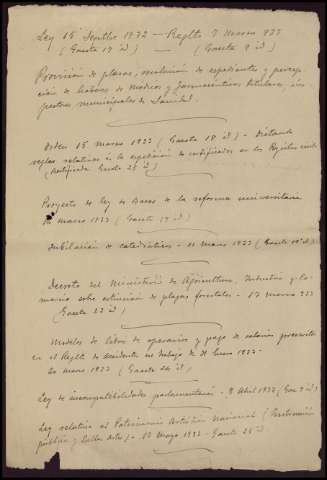 Ley 15 Septbre 1932 — Reglto 7 marzo 933
(Gaceta 17 id) — (Gaceta 9 id)
Provisión de plazas, resolución de expedientes y percepción
de haberes de médicos y farmaceuticos titulares, ins
pectores municipales de Sanidad.
Orden 15 marzo 1933 (Gaceta 18 id) - Dictando
reglas relativas a la expedición de certificados en los Registros civiles
(rectificada Gaceta 25 id)
Proyecto de ley de Bases de la reforma universitaria
marzo 1933 (Gaceta id)
Jubilación de catedráticos - marzo 1933 (Gaceta id)
Decreto del Ministerio de Agricultura, Industria y Co
mercio sobre extinción de plagas forestales - 17 marzo 933
(Gaceta 22 id)
Modelos de libro de operarios y pago de salarios
en el Reglto de accidentes del trabajo de 31 Enero 1933 -
20 marzo 1933 (Gaceta 24 id)
Ley de incompatibilidades parlamentarias - 8 Abril 1933 (Gac 9 id)
Ley relativa al Patrimonio Artístico Nacional (Instrucción
pública y Bellas Artes) - 13 Mayo 1933 - Gaceta 25 id